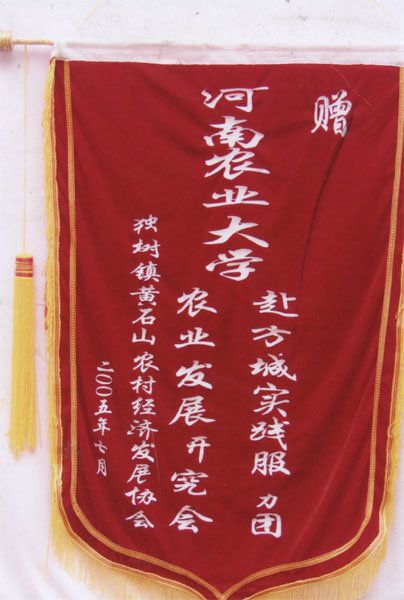 赠
河南农业大学
赴方城实践服力团
农业发展开究会
独树镇黄石山农村经济发展协会
二〇〇五年七月